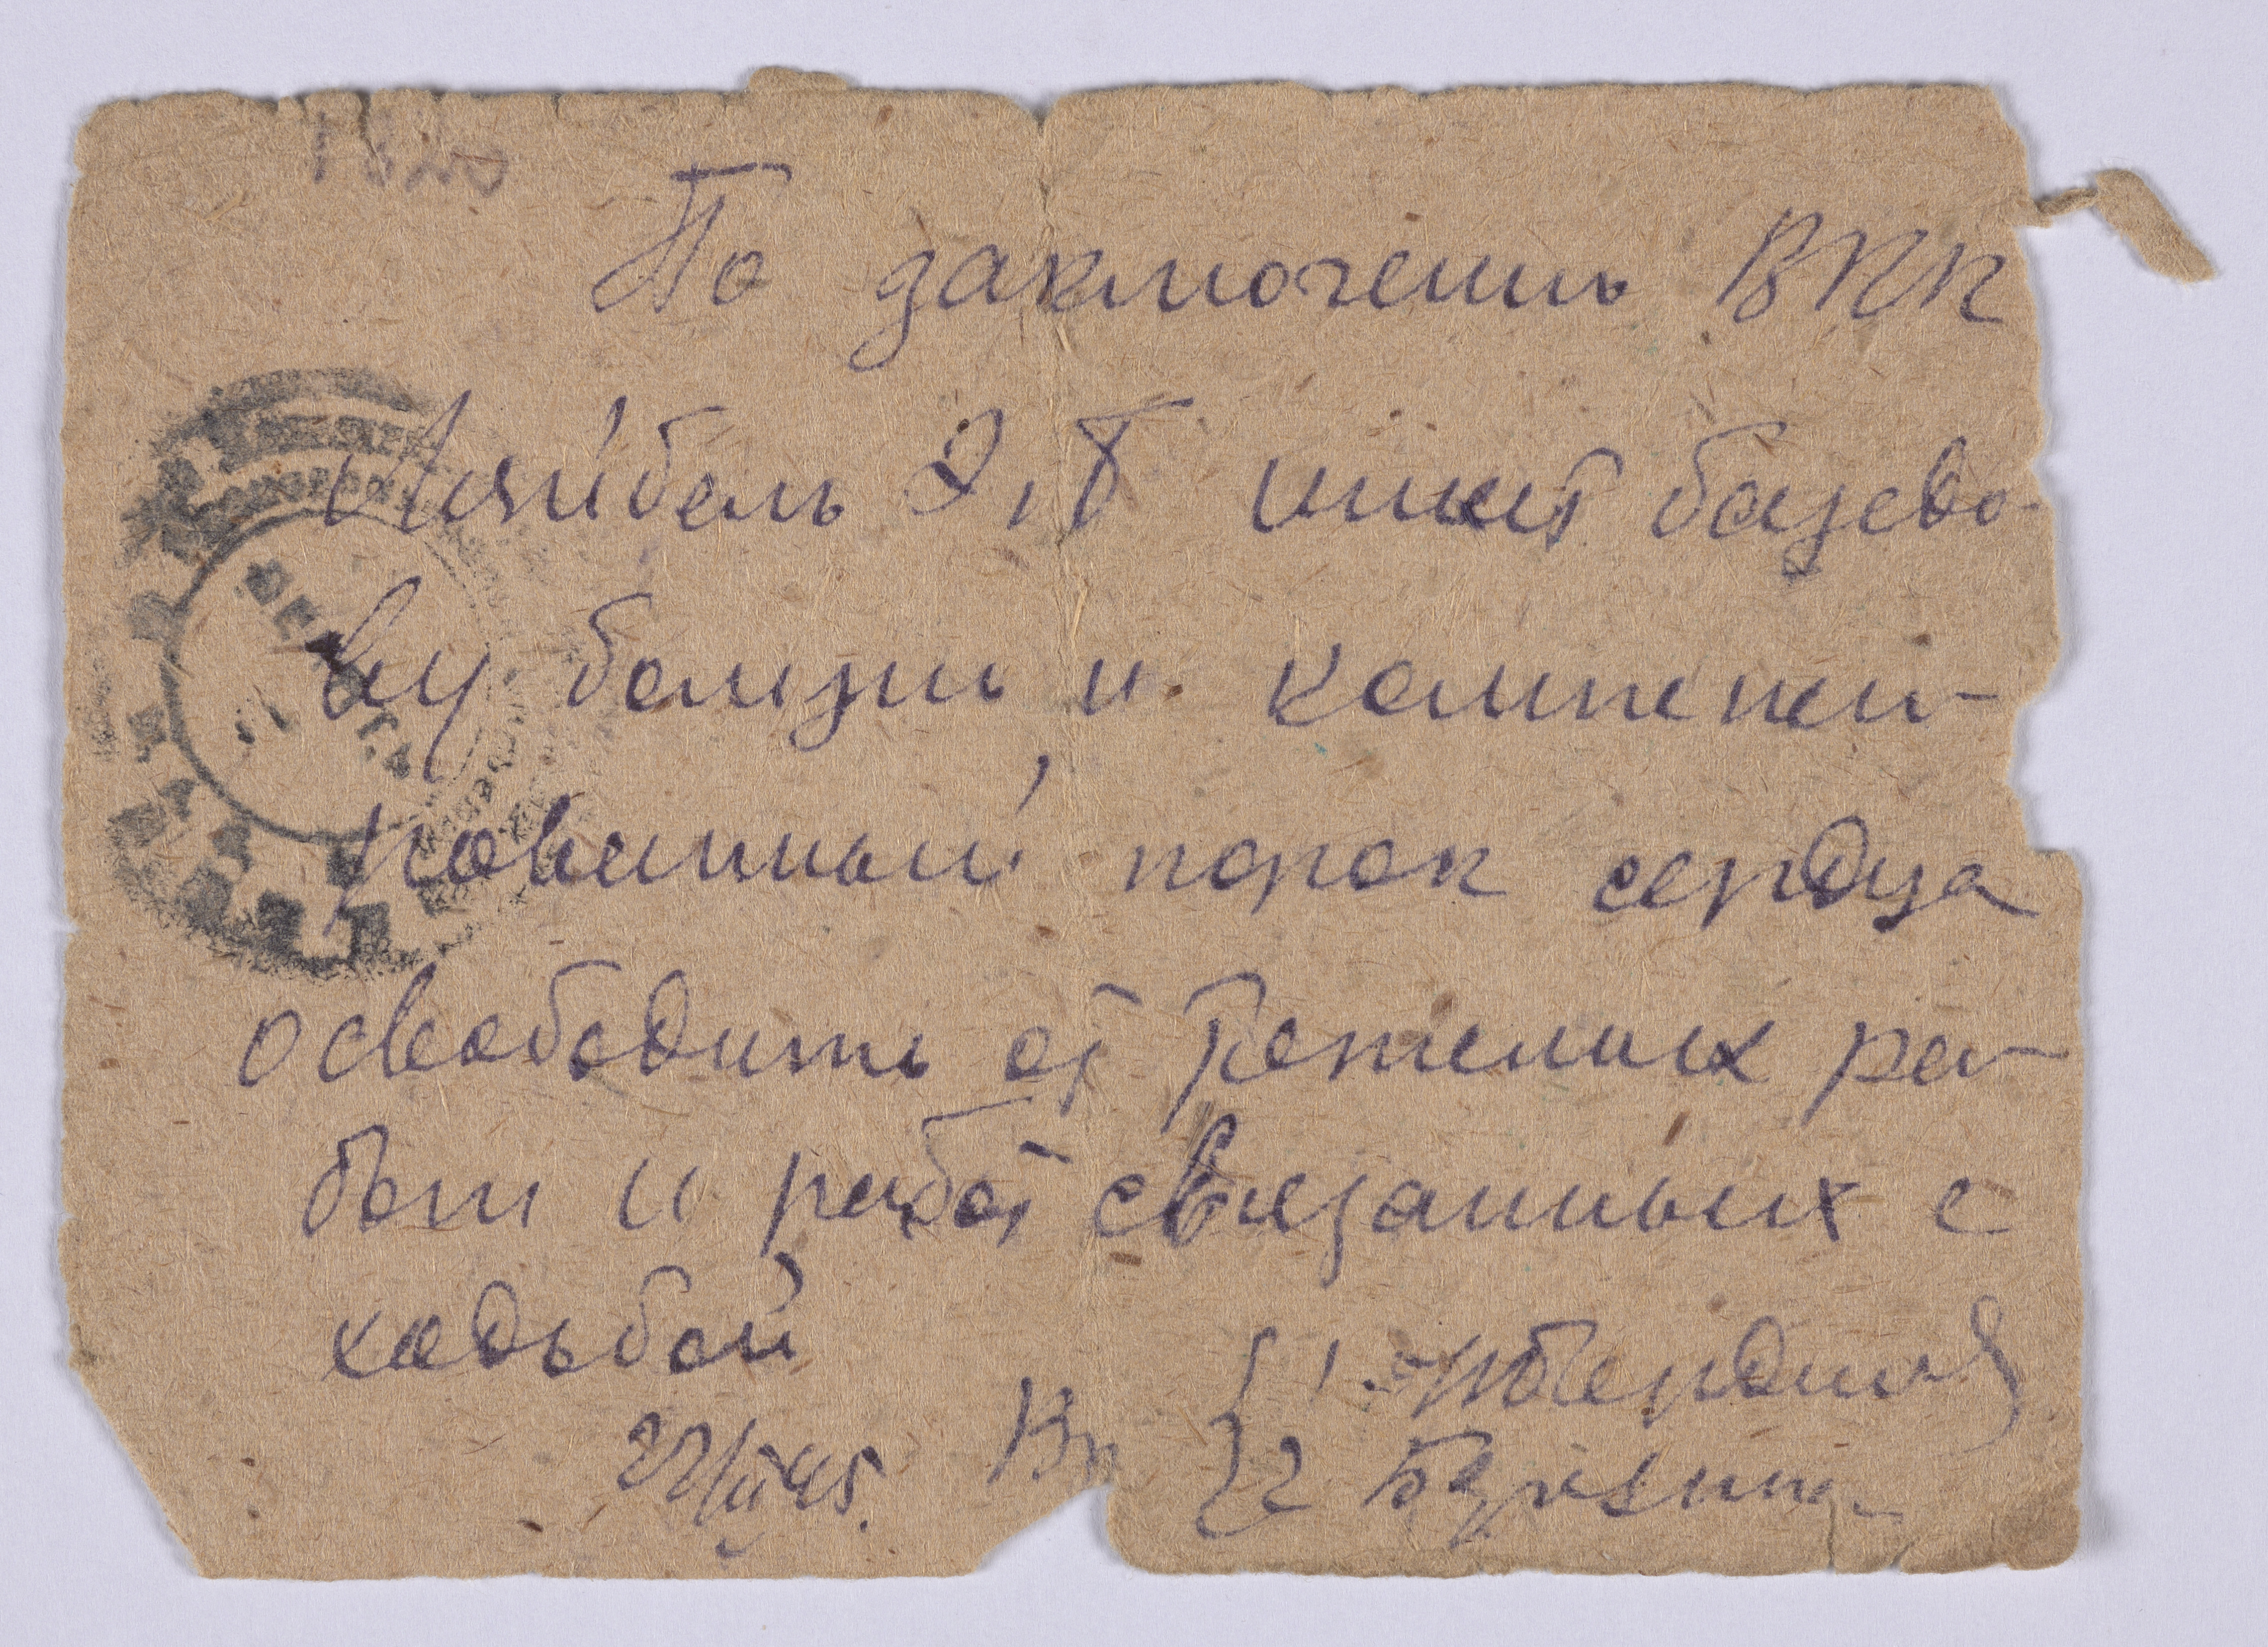 По заключению ВКК
Лейбель Э.Т. имеет базедо-
ву болезнь и компенси-
рованный порок сердца
освободить от тяжелых ра-
бот и работ связанных с
ходьбой
Вр { 1.
22/IV 45. { 2